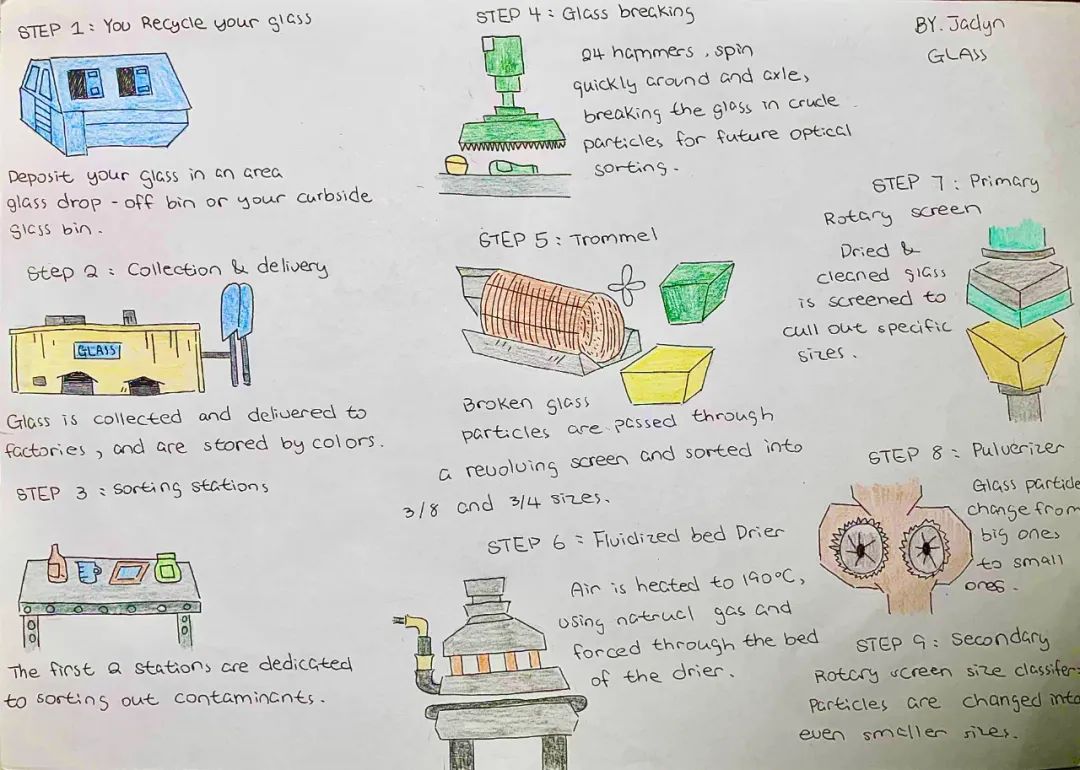 STEP 1: You Recycle your glass
Deposit your glass in an area
glass drop - off bin or your curbside
glass bin.
Step 2: Collection & delivery
GLASS
Glass is collected and delivered to
factories, and are stored by colors.
STEP 3: Sorting stations
The first 2 stations are dedicated
to sorting out contaminants.
STEP 4: Glass breaking
24 hammers, spin
quickly around and axle,
breaking the glass in crude
particles for future optical
sorting.
STEP 5: Trommel
Broken glass
particles are passed through
a revolving screen and sorted into
3/8 and 3/4 sizes.
STEP 6: Fluidized bed Drier
Air is heated to 190°C,
using natrual gas and
forced through the bed
of the drier.
BY. Jaclyn
GLASS
STEP 7: Primary
Rotary screen
Dried &
cleaned glass
is screened to
cull out specific
sizes.
STEP 8: Pulverizer
Glass particle
change from
big ones
to small
ones.
STEP 9: Secondary
Rotary screen size classifer:
Particles are changed into
even smaller sizes.